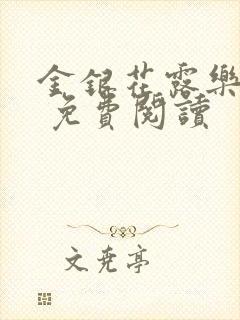 金銀花露樂
免費閱讀
文堯亭